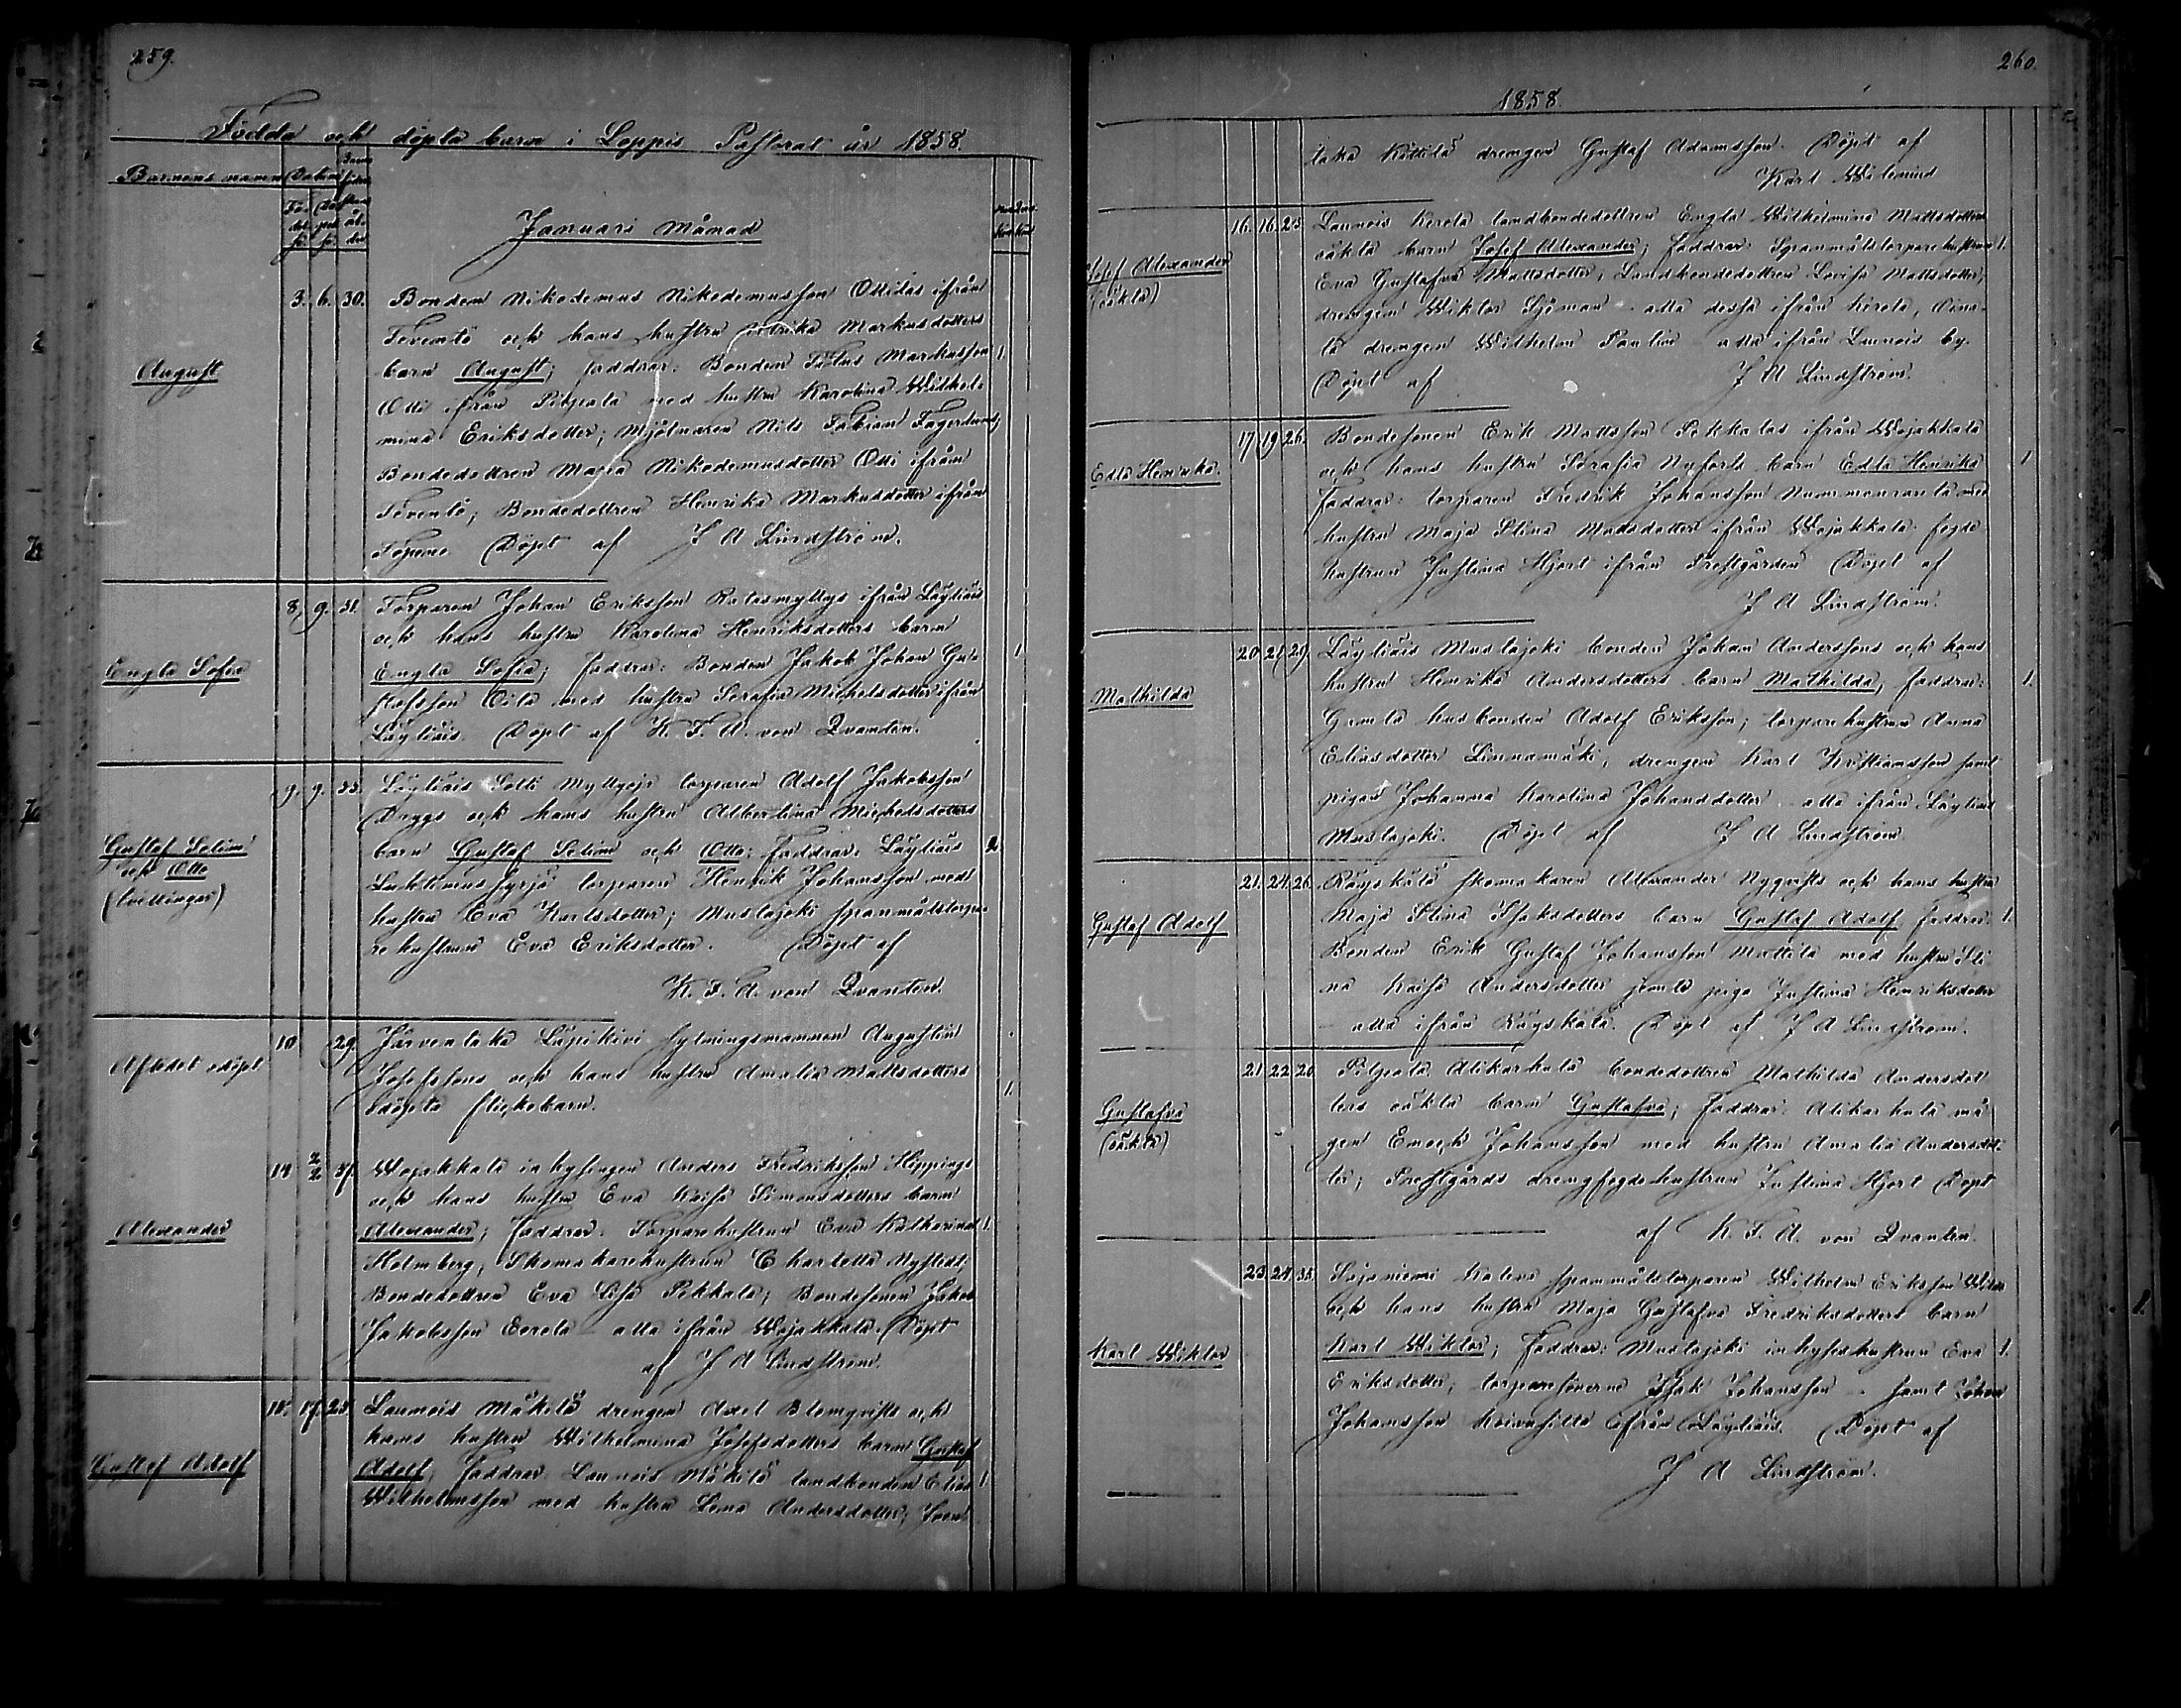 259.
Födda och döpta barn i Loppis Pastorat år 1858.
Barnens namn
Januari Månad
August
3. 6. 30. Bonden Nikodemus Nikodemusson Ottilas ifrån
Teventö och hans hustru Markusdotters
barn August; Faddrar: Bonden Markusson 1.
Otti ifrån Pilpala med hustru Karolina Wilhel-
mina Eriksdotter; Mjölnaren Nils Fabian Fagerlund;
Bondedottren Maria Nikodemusdotter Otti ifrån
Teventö; Bondedottren Henrika Markusdotter ifrån
Topeno Döpt af J A Lindström.
Engla Sofia
8. 9. 31. Torparen Johan Eriksson Ratasmyllys ifrån Läyliäis
och hans hustru Karolina Henriksdotters barn
Engla Sofia; faddrar: Bonden Jakob Johan Gu- 1
stafsson Oila med hustru Serafia Michelsdotter ifrån
Läyliäis. Döpt af K. F. A. von Qvanten.
Gustaf Selim
och Otto
(tvillingar)
9. 9. 33. Läyliäis Sotti Myllyoja torparen Adolf Jakobsson
och hans hustru Albertina Michelsdotters
barn Gustaf Selim och Otto; Faddrar: Läyliäis 2
torparen Henrik Johansson med
hustru Eva Karlsdotter; Muslajoki spanmålstorpa-
re hustrun Eva Eriksdotter. Döpt af
K. F. A. von Qvanten.
Afledet odöpt
10 29. Järventaka Läpikivi hytningsmannen Augustin
Josefssons och hans hustru Amalia Mattsdotters
odöpta flickobarn. 1.
Alexander
14 2/2 37. Wojakkala inhysingen Anders Fredriksson Hippings
och hans hustru Eva Kaisa Simonsdotters barn
Alexander; faddrar: Torparehustrun Eva Katharina 1.
Holmberg, Skomakarehustrun Charlotta Nystedt;
Bondedottren Eva Lisa Pekkala; Bondesonen Jakob
Jakobsson Eerola – alla ifrån Wojakkala. Döpt
af J A Lindström.
Gustaf Adolf
15. 17. 25. Launois Mäkilä drengen Axel Blomqvists och
hans hustru Wilhelmina Josefsdotters barn Gustaf
Adolf, faddrar: Launois Mäkilä landbonden Elias 1
Wilhelmsson med hustru Lena Andersdotter;
260.
1858.
taka Kittilä drengen Gustaf Adamsson. Döpt af
Karl
Josef Alexander
(oäkta)
16. 16. 25. Launois Kerola landbondedottren Engla Wilhelmina Mattsdotters
oäkta barn Josef Alexander; faddrar: Spanmålstorpare hustrun 1.
Eva Gustafva Mattsdotter, Landbondedottren Lovisa Mattsdotter,
drengen Wiktor Sjöman – alla dessa ifrån Kerola,
la drengen Wilhelm Paulin – alla ifrån Launois by.
Döpt af J A Lindström.
Edla Henrika
17 19 26. Bondesonen Erik Mattsson Pekkalas ifrån Wojakkala
och hans hustru Serafia Nyforts barn Edla Henrika 1
Faddrar: torparen Fredrik Johansson Nummenranta med
hustru Maja Stina Madsdotter ifrån Wojakkala; fogde
hustrun Justina Hjort ifrån Prestgården Döpt af
J A Lindström.
Mathilda
20 21 29 Läyliäis Muslajoki bonden Johan Anderssons och hans
hustru Henrika Andersdotters barn Mathilda, faddrar: 1.
Gamla husbonden Adolf Eriksson; torpare hustrun Anna
Eliasdotter Linnamäki, drengen Karl Kristiansson samt
pigan Johanna Karolina Johansdotter – alla ifrån Läyliäis
Muslajoki. Döpt af J A Lindström
Gustaf Adolf
21. 24. 26. Räyskälä skomakaren Alexander Nyqvists och hans hustru
Maja Stina Isaksdotters barn Gustaf Adolf faddrar: 1.
Bonden Erik Gustaf Johansson Mattila med hustru Sti-
na Kaisa Andersdotter jemte piga Justina Henriksdotter
– alla ifrån Räyskälä. Döpt af J A Lindström.
Gustafva
(oäkta)
21. 22. 20 Pilpala Alikarhula bondedottren Mathilda Andersdot-
ters oäkta barn Gustafva; faddrar: Alikarhula må-
gen Enock Johansson med hustru Amalia Andersdot-
ter; Prestgårds drengfogdehustrun Justina Hjort Döpt
af K. F. A. von Qvanten.
Karl Wiktor
23. 24. 35. Sajaniemi Kalens spanmålstorparen Wilhelm Eriksson
och hans hustru Maja Gustafva Fredriksdotters barn
Karl Wiktor; Faddrar: Muslajoki inhyseshustrun Eva 1.
Eriksdotter; torparesönerne Isak Johansson – samt Johan
Johansson Koivusilta ifrån Läyliäis. Döpt af
J A Lindström.